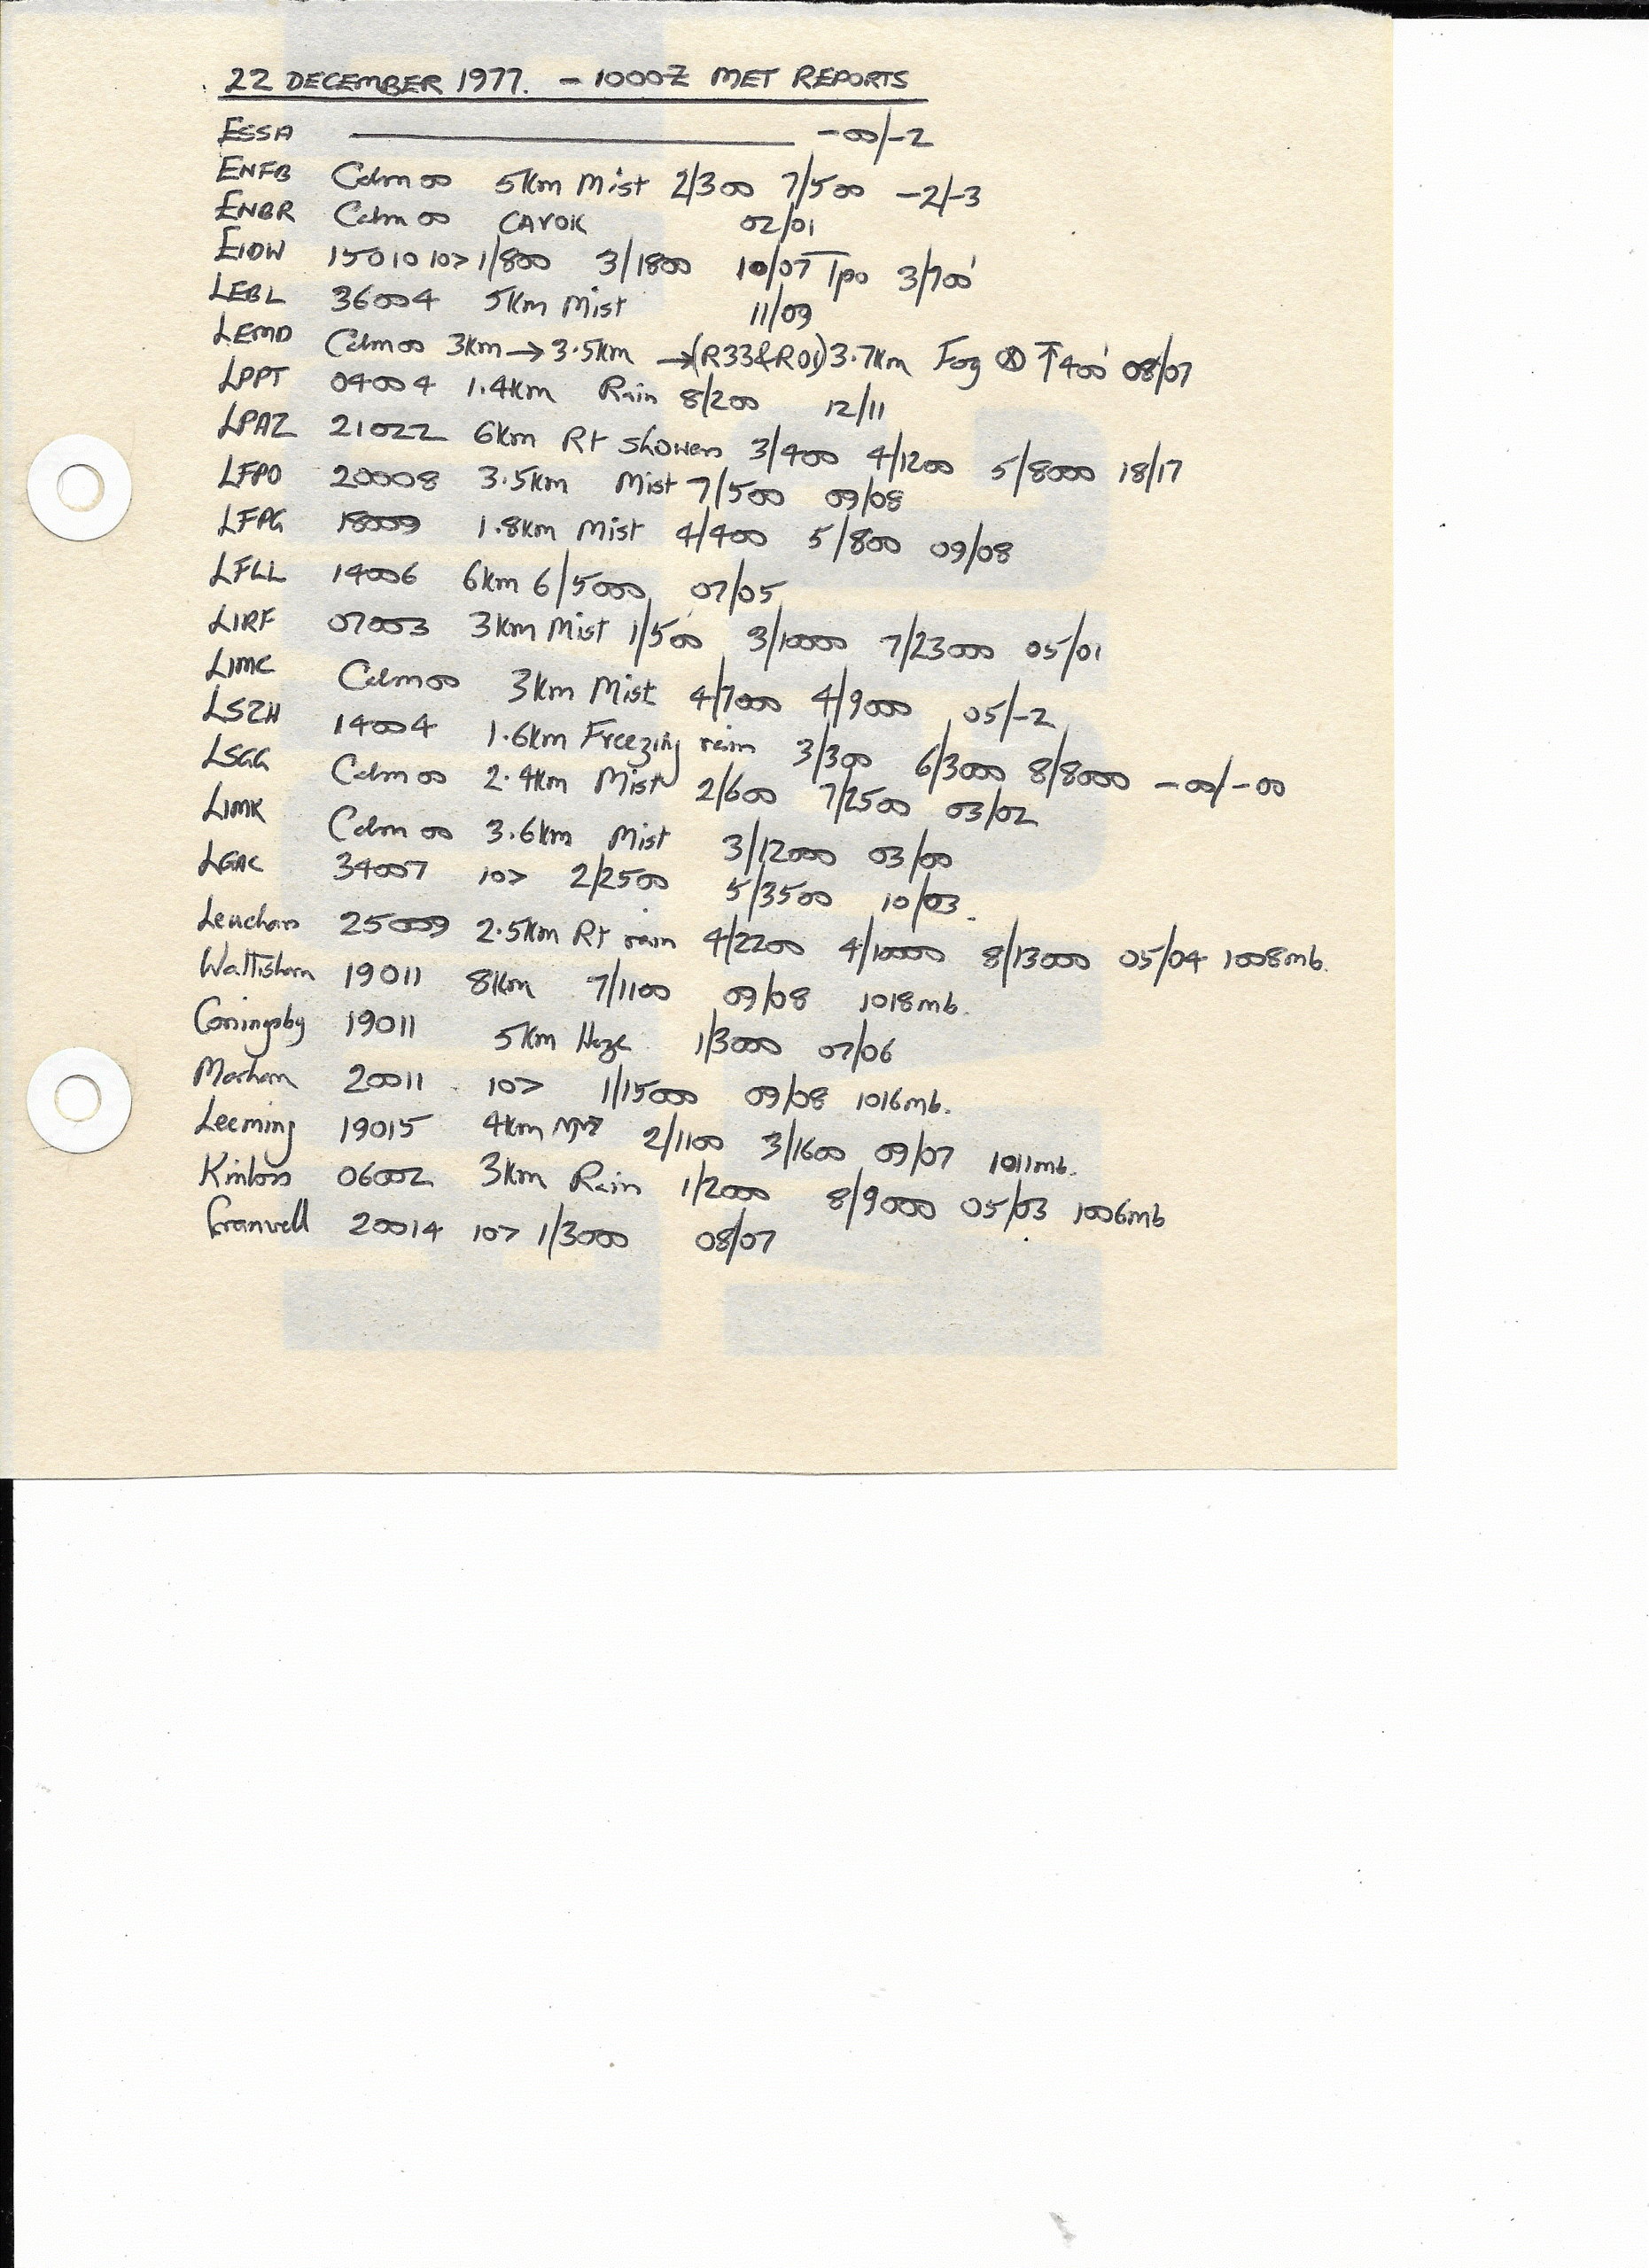 22 DECEMBER 1977. - 1000Z MET REPORTS
ESSA ——— -00/-2
ENFB Calm 00 5km Mist 2/300 7/500 -2/-3
ENBR Calm 00 CAVOK 02/01
EIDW 15010 10> 1/800 3/1800 10/07 Tpo 3/700'
LEBL 36004 5km Mist 11/09
LEMD Calm 00 3km → 3.5km → (R33&R01) 3.7km Fog ↑400' 08/07
LPPT 04004 1.4km Rain 8/200 12/11
LPAZ 21022 6km Rt showers 3/400 4/1200 5/8000 18/17
LFPO 20008 3.5km Mist 7/500 09/08
LFPG 18009 1.8km Mist 4/400 5/800 09/08
LFLL 14006 6km 6/5000 07/05
LIRF 07003 3km Mist 1/500 3/10000 7/23000 05/01
LIMC Calm 00 3km Mist 4/7000 4/9000 05/-2
LSZH 14004 1.6km Freezing rain 3/300 6/3000 8/8000 -00/-00
LSGG Calm 00 2.4km Mist 2/600 7/2500 03/02
LIMK Calm 00 3.6km Mist 3/12000 03/00
LGAC 34007 10> 2/2500 5/3500 10/03.
Leuchars 25009 2.5km Rt rain 4/2200 4/10000 8/13000 05/04 1008mb.
Wattisham 19011 8km 7/1100 09/08 1018mb.
Coningsby 19011 5km Haze 1/3000 07/06
Marham 20011 10> 1/15000 09/08 1016mb.
Leeming 19015 4km 2/1100 3/1600 09/07 1011mb.
Kinloss 06002 3km Rain 1/2000 8/9000 05/03 1006mb
Cranwell 20014 10> 1/3000 08/07